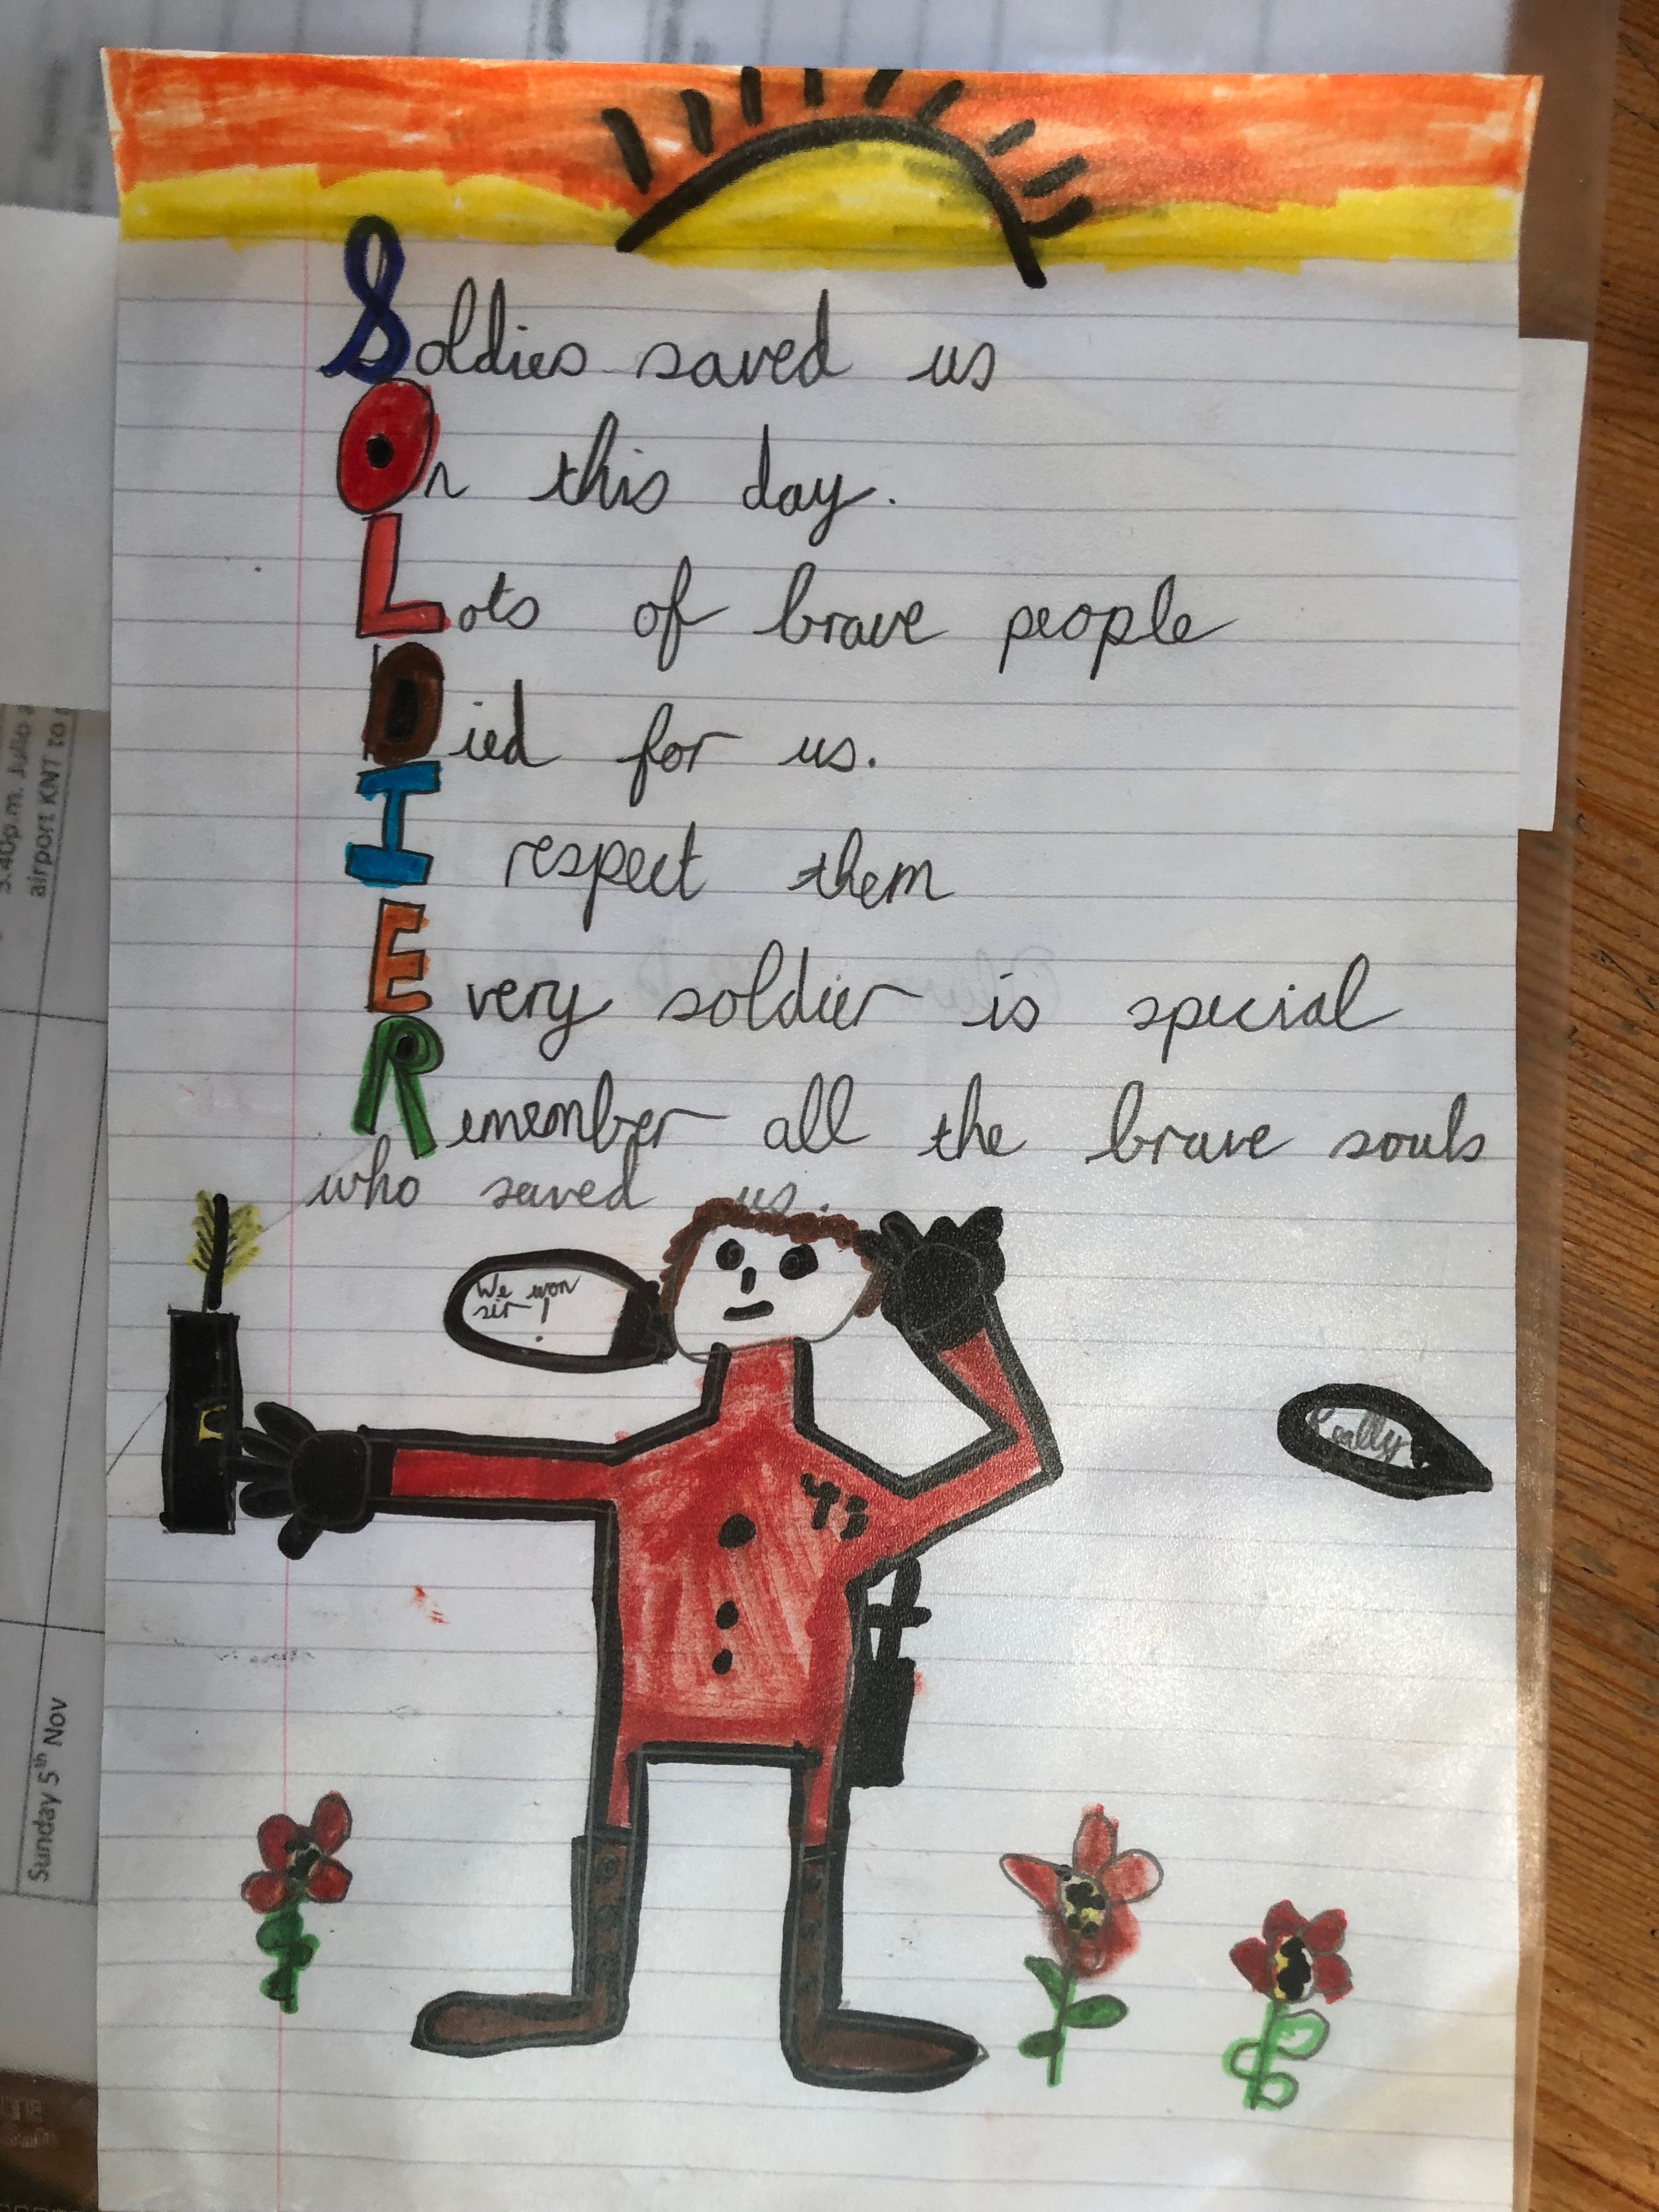 Soldies saved us
On this day.
Lots of brave people
Died for us.
I respect them
Every soldier is special
Remember all the brave souls
who saved us.
We won
sir!
Really
3.40p.m. Julio
airport KNT to
Sunday 5th Nov